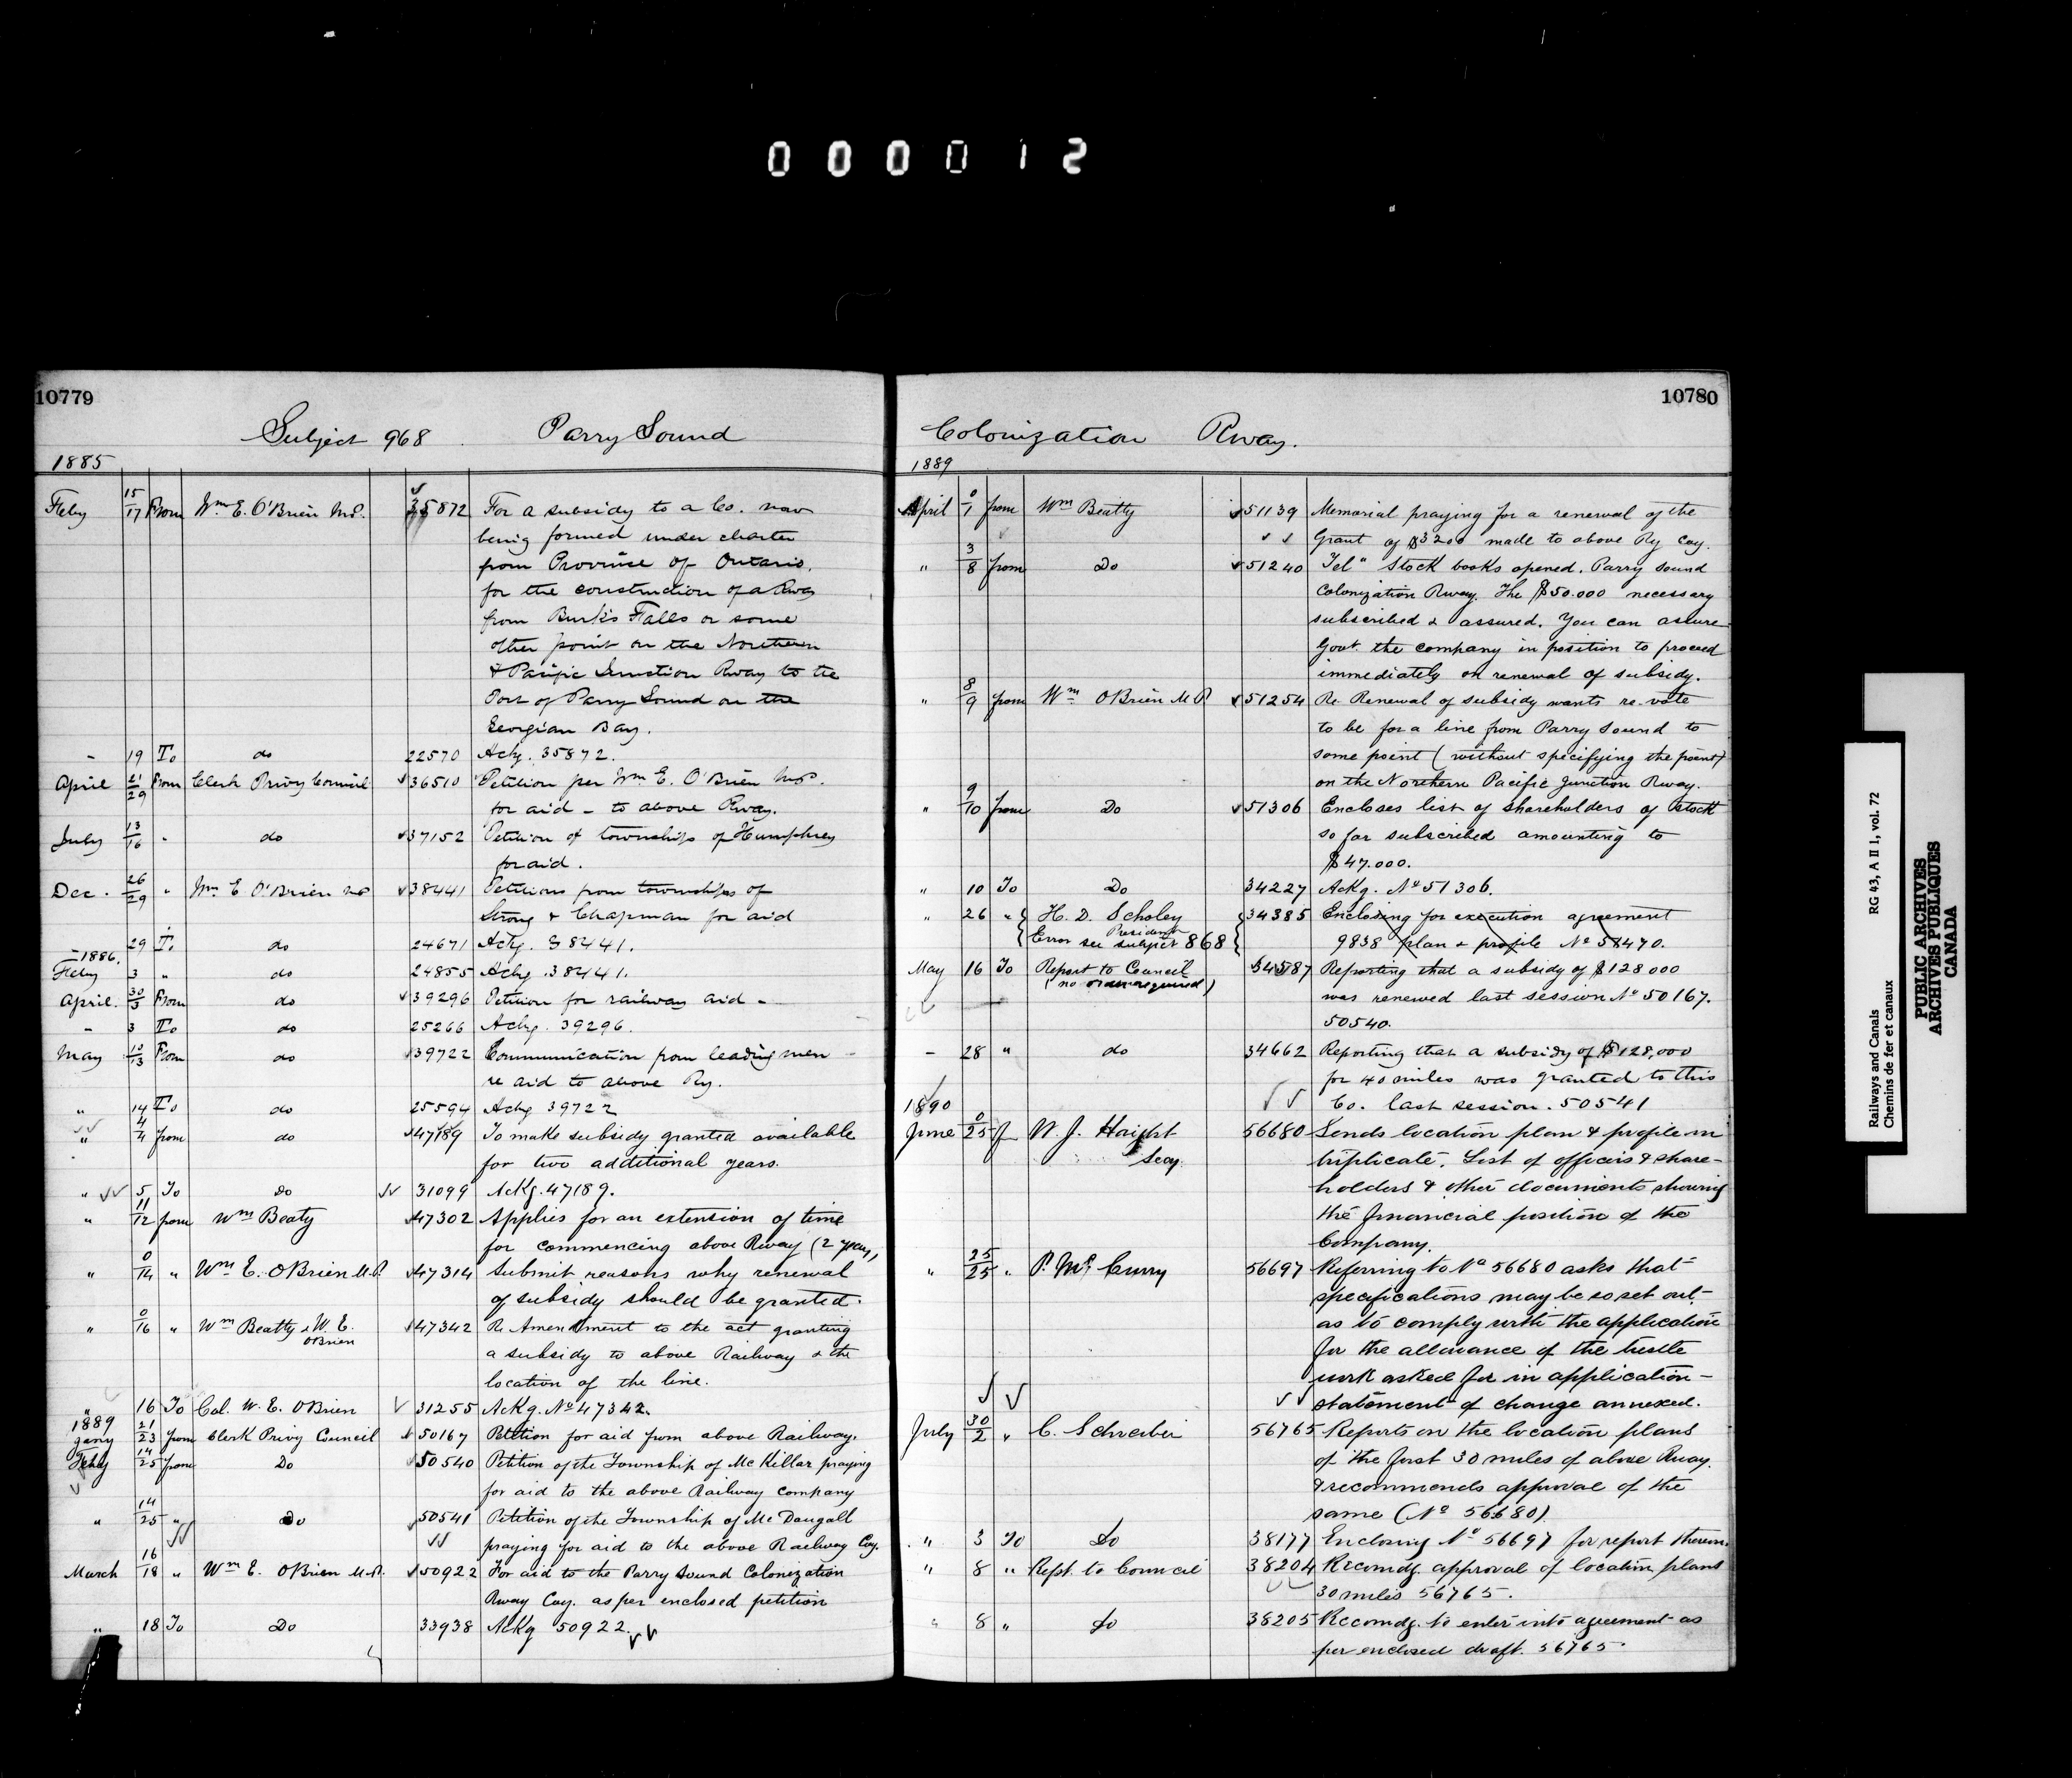 000012
10779
Subject 968 Parry Sound
1885
Feby 15/17 From Wm E. O'Brien M.P. 35872 For a subsidy to a Co. now
being formed under charter
from Province of Ontario,
for the construction of a Rway
from Burk's Falls or some
other point on the Northern
& Pacific Junction Rway to the
Port of Parry Sound on the
Georgian Bay.
- 19 To do 22570 Ackg. 35872.
April 21/29 From Clerk Privy Council 36510 Petition per Wm E. O'Brien M.P.
for aid - to above Rway.
July 13/16 " do 37152 Petition of townships of Humphrey
for aid.
Dec. 26/29 " Wm E O'Brien MP 38441 Petitions from townships of
Strong & Chapman for aid
- 29 To do 24671 Ackg. 38441.
1886.
Feby 3 " do 24855 Ackg. 38441.
April. 30/3 From do 39296 Petition for railway aid -
- 3 To do 25266 Ackg. 39296.
May 10/13 From do 39722 Communication from leading men
re aid to above Ry.
" 14 To do 25594 Ackg 39722
" 4/4 from do 47189 To make subsidy granted available
for two additional years.
" 5 To Do 31099 AcKg. 47189.
" 11/12 from Wm Beaty 47302 Applies for an extension of time
for commencing above Rway (2 years)
" 0/14 " Wm E. OBrien M.P. 47314 Submit reasons why renewal
of subsidy should be granted.
" 0/16 " Wm Beatty & W. E. OBrien 47342 Re Amendment to the act granting
a subsidy to above Railway & the
location of the line.
" 16 To Col. W. E. OBrien 31255 AcKg. No 47342.
1889
Jany 21/23 from Clerk Privy Council 50167 Petition for aid from above Railway.
Feby 14/25 from Do 50540 Petition of the Township of McKillar praying
for aid to the above Railway company
" 14/25 " Do 50541 Petition of the Township of McDougall
praying for aid to the above Railway Coy.
March 16/18 " Wm E. OBrien M.P. 50922 For aid to the Parry Sound Colonization
Rway Coy. as per enclosed petition
" 18 To Do 33938 AcKg 50922.
10780
Colonization Rway.
1889
April 0/1 from Wm Beatty 51139 Memorial praying for a renewal of the
Grant of $3200 made to above Ry Coy.
" 3/8 from Do 51240 Tel" Stock books opened. Parry Sound
Colonization Rway. The $50.000 necessary
subscribed & assured. You can assure
Govt. the company in position to proceed
immediately on renewal of subsidy.
" 8/9 from Wm OBrien M.P 51254 Re Renewal of subsidy wants re-vote
to be for a line from Parry Sound to
some point (without specifying the point)
on the Northern Pacific Junction Rway.
" 9/10 from Do 51306 Encloses list of shareholders of stock
so far subscribed amounting to
$47.000.
" 10 To Do 34227 AcKg. No 51306.
" 26 " H. D. Scholey President 34385 Enclosing for execution agreement
Error see subject 868 9838 plan & profile No 58470.
May 16 To Report to Council 34587 Reporting that a subsidy of $128000
(no order required) was renewed last session No 50167.
50540.
- 28 " do 34662 Reporting that a subsidy of $128,000
for 40 miles was granted to this
Co. last session. 50541
1890
June 0/25 f W. J. Haight 56680 Sends location plan & profile in
Secy. triplicate. List of officers & share-
holders & other documents showing
the financial position of the
Company.
" 25/25 " P. McCurry 56697 Referring to No 56680 asks that
specifications may be so set out
as to comply with the application
for the allowance of the trestle
work asked for in application -
statement of change annexed.
July 30/2 " C. Schreiber 56765 Reports on the location plans
of the first 30 miles of above Rway.
& recommends approval of the
same (No 56680)
" 3 To Do 38177 Enclosing No 56697 for report thereon.
" 8 " Rept. to Council 38204 Recomdg. approval of location plans
30 miles 56765.
" 8 " do 38205 Recomdg. to enter into agreement as
per enclosed draft. 56765.
Railways and Canals RG 43, A II 1, vol. 72
Chemins de fer et canaux
PUBLIC ARCHIVES
ARCHIVES PUBLIQUES
CANADA